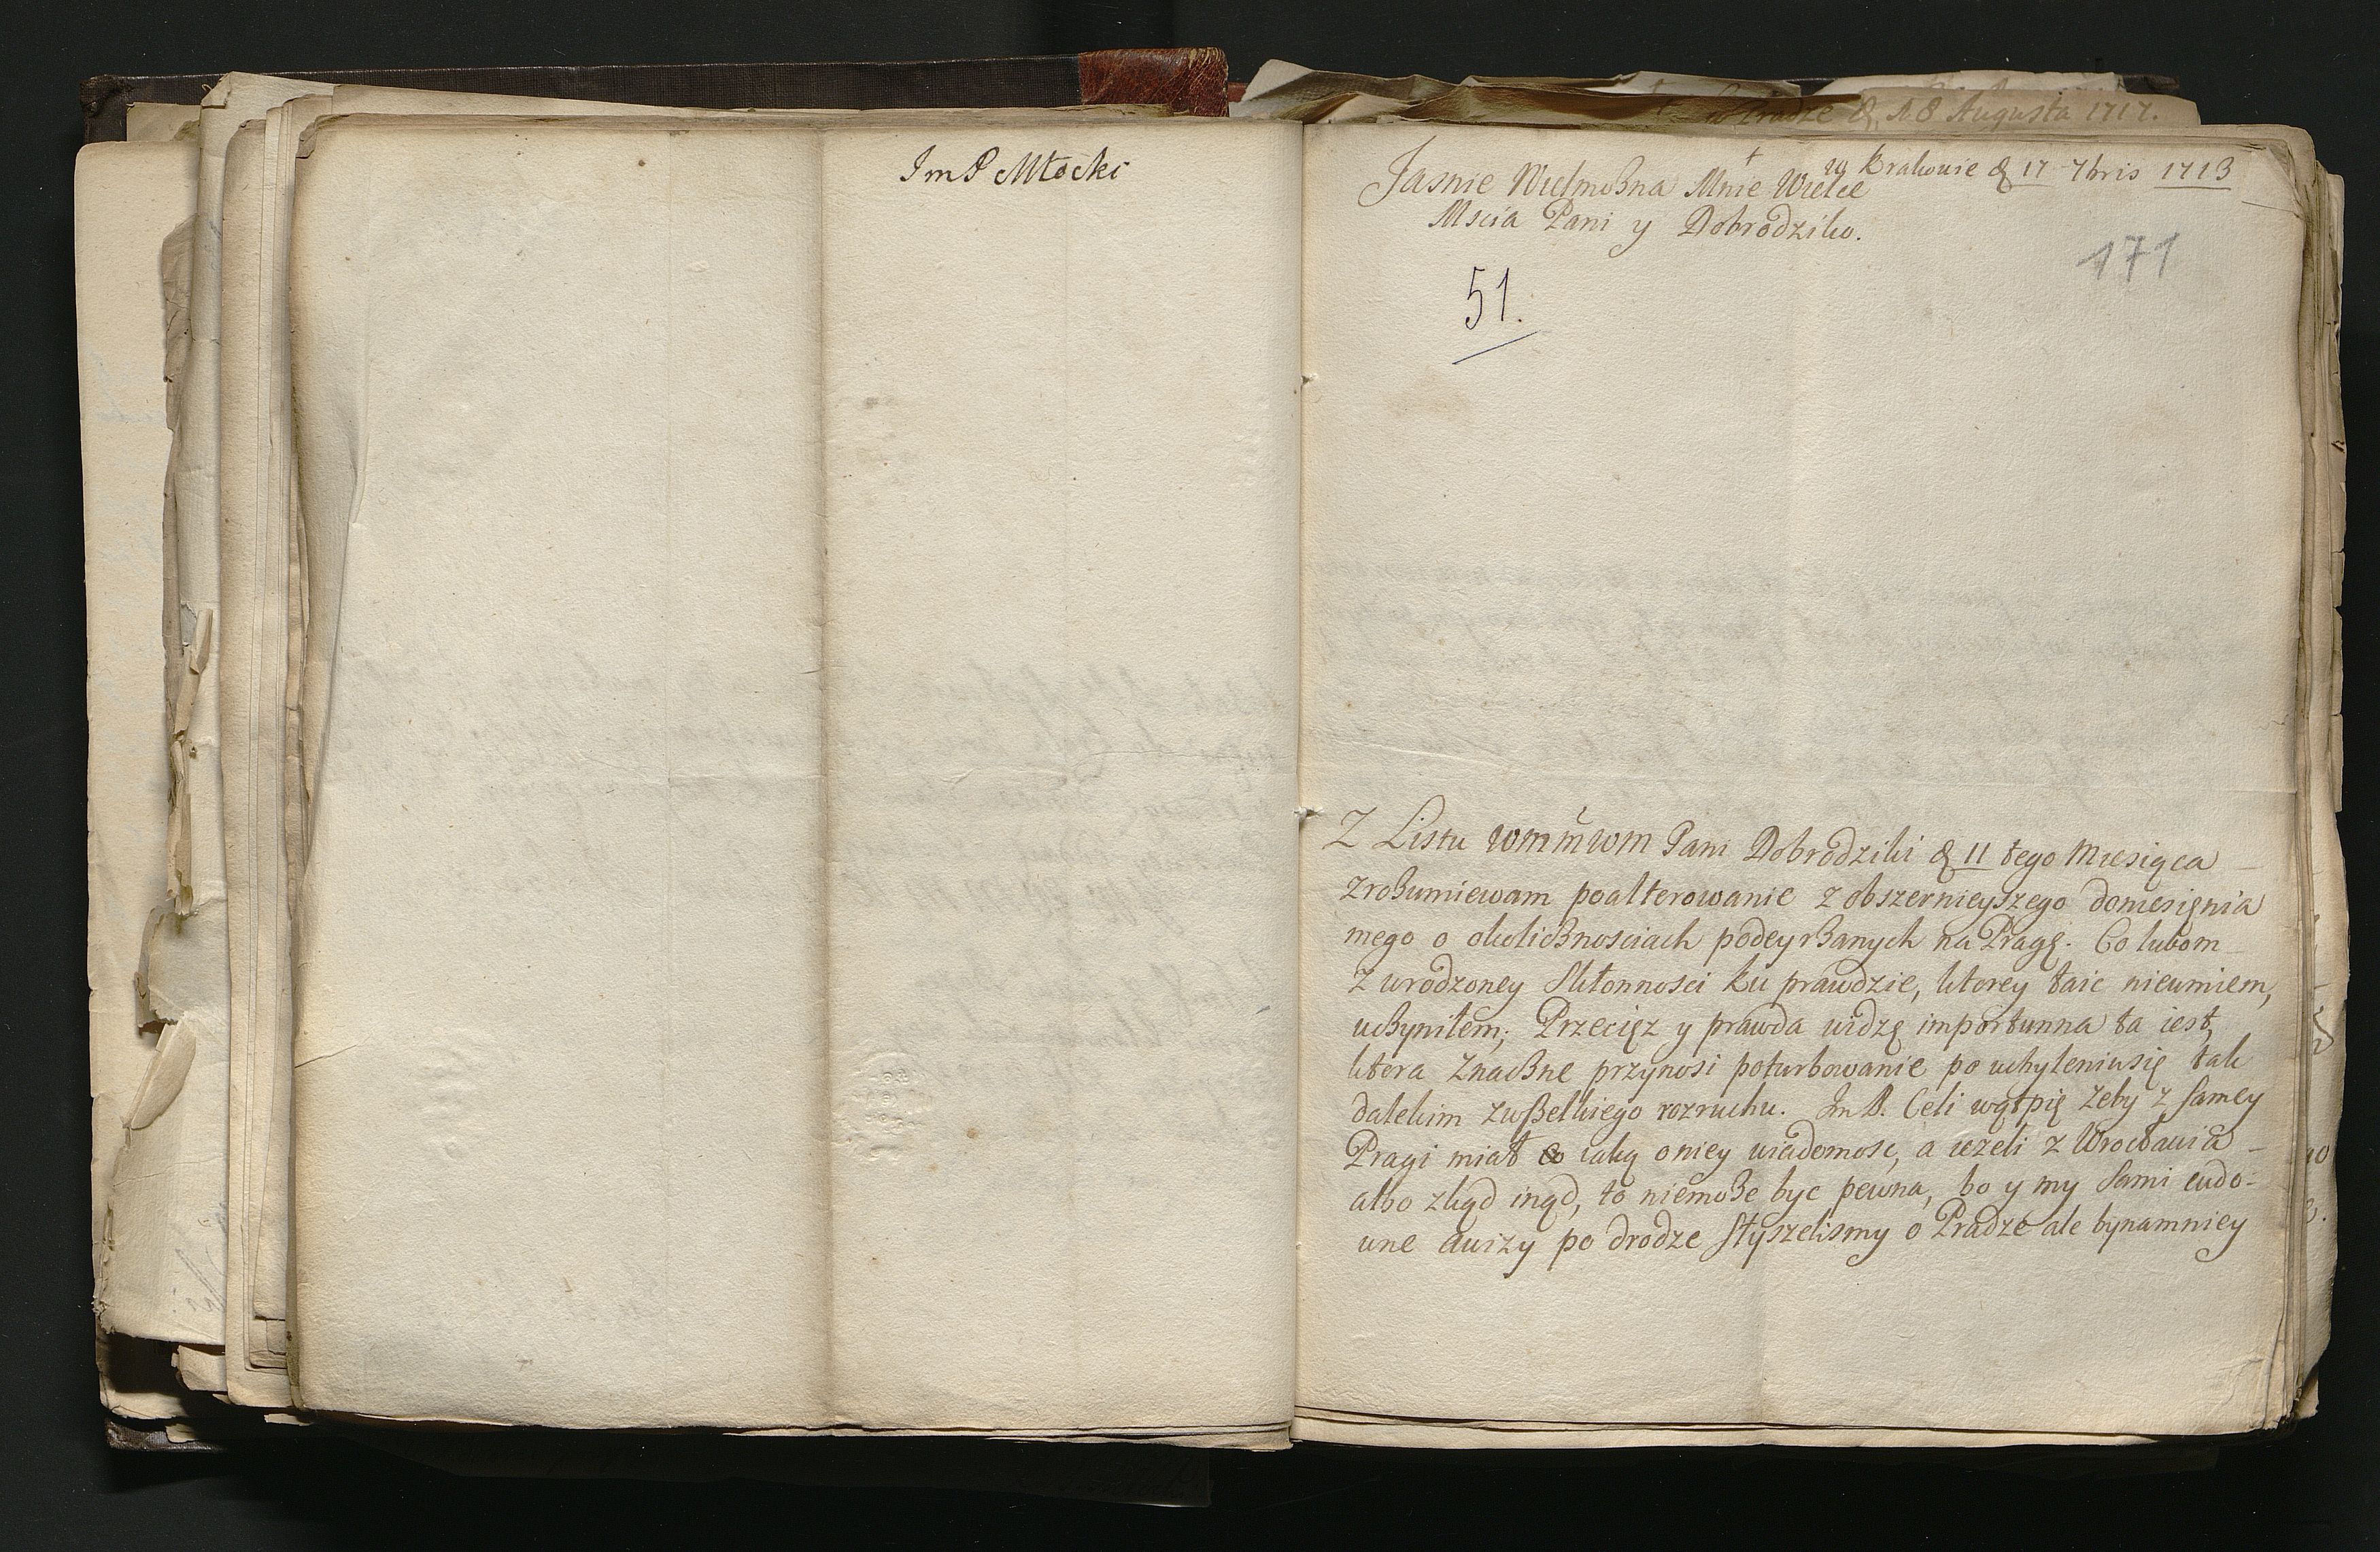 Im P Młocki
w Pradze d. 18 Augusta 1717.
†
w Krakowie d. 17 7bris 1713
Jasnie Wielmożna Mnie Wielce
Mscia Pani y Dobrodziko.
171
51.
Z Listu WMMWM Pani Dobrodziki d. 11 tego Miesiąca
zrozumiewam poalterowanie z obszernieyszego doniesięnia
mego o okolicznosciach podeyrzanych na Pragę. Co lubom
z urodzoney skłonnosci ku prawdzie, ktorey taic nieumiem,
uczyniłem; Przecięz y prawda widzę importunna ta iest,
ktora znaczne przynosi poturbowanie po uchyleniusię tak
dalekim zwszelkiego rozruchu. Im P. Celi wątpię zeby z samey
Pragi miał iaką oniey wiadomosc, a iezeli z Wrocławia
albo zkąd inąd, to niemoże byc pewna, bo y my sami cudo-
wne awizy po drodze słyszelismy o Pradze ale bynamniey